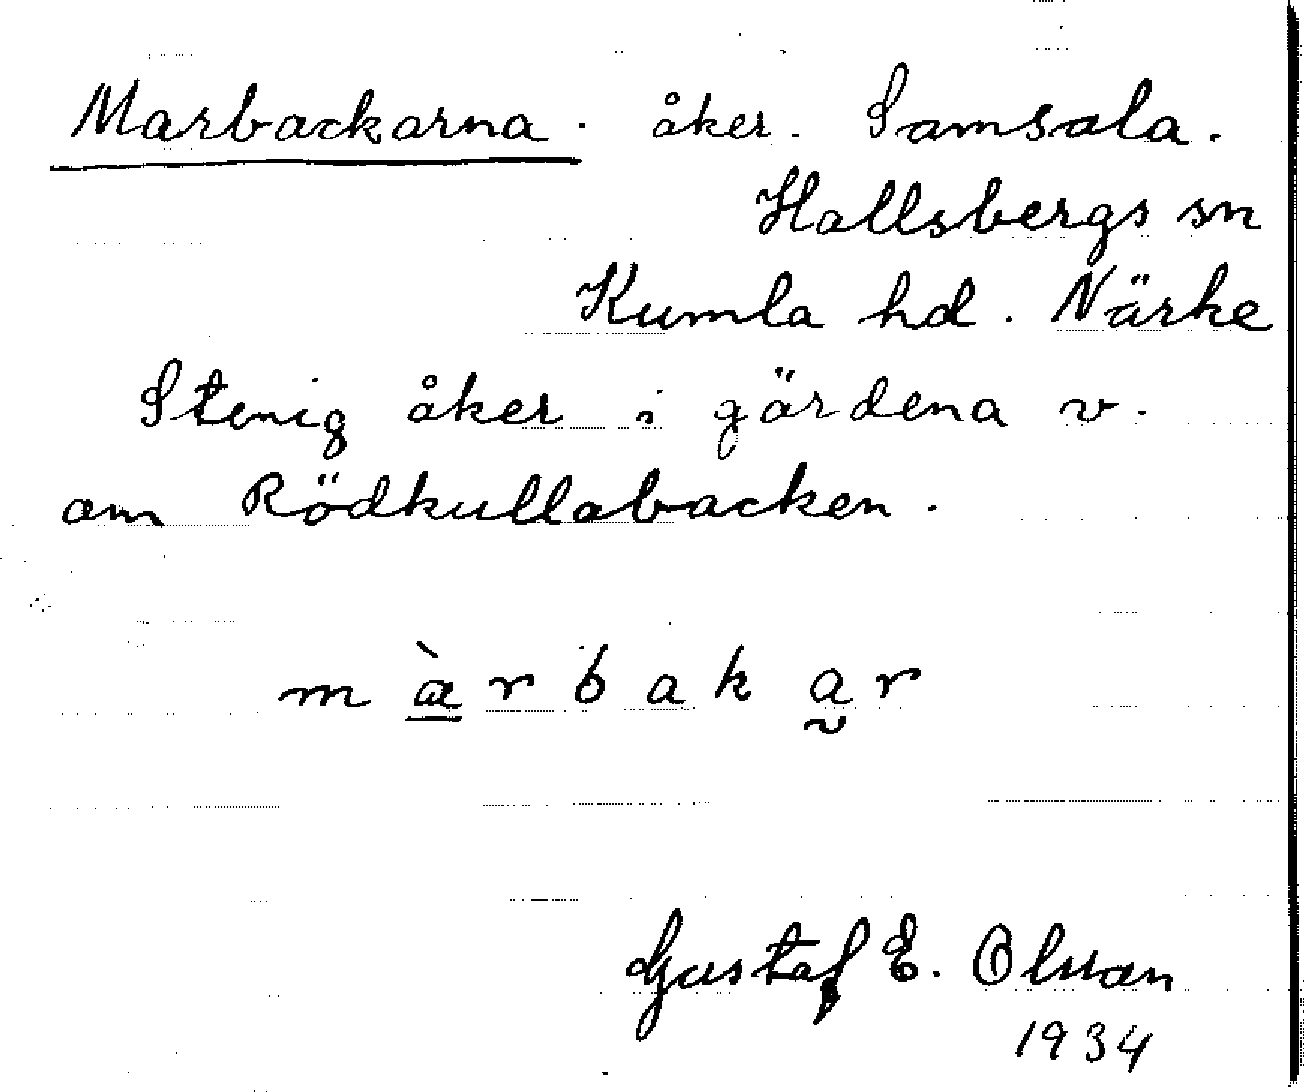 Marbackarna. åker. Samsala.
Hallsbergs sn
Kumla hd. Närke
Stenig åker i gärdena v.
om Rödkullabacken.
m æ̀ r b a k a̰ r
Gustaf E. Olsson
1934